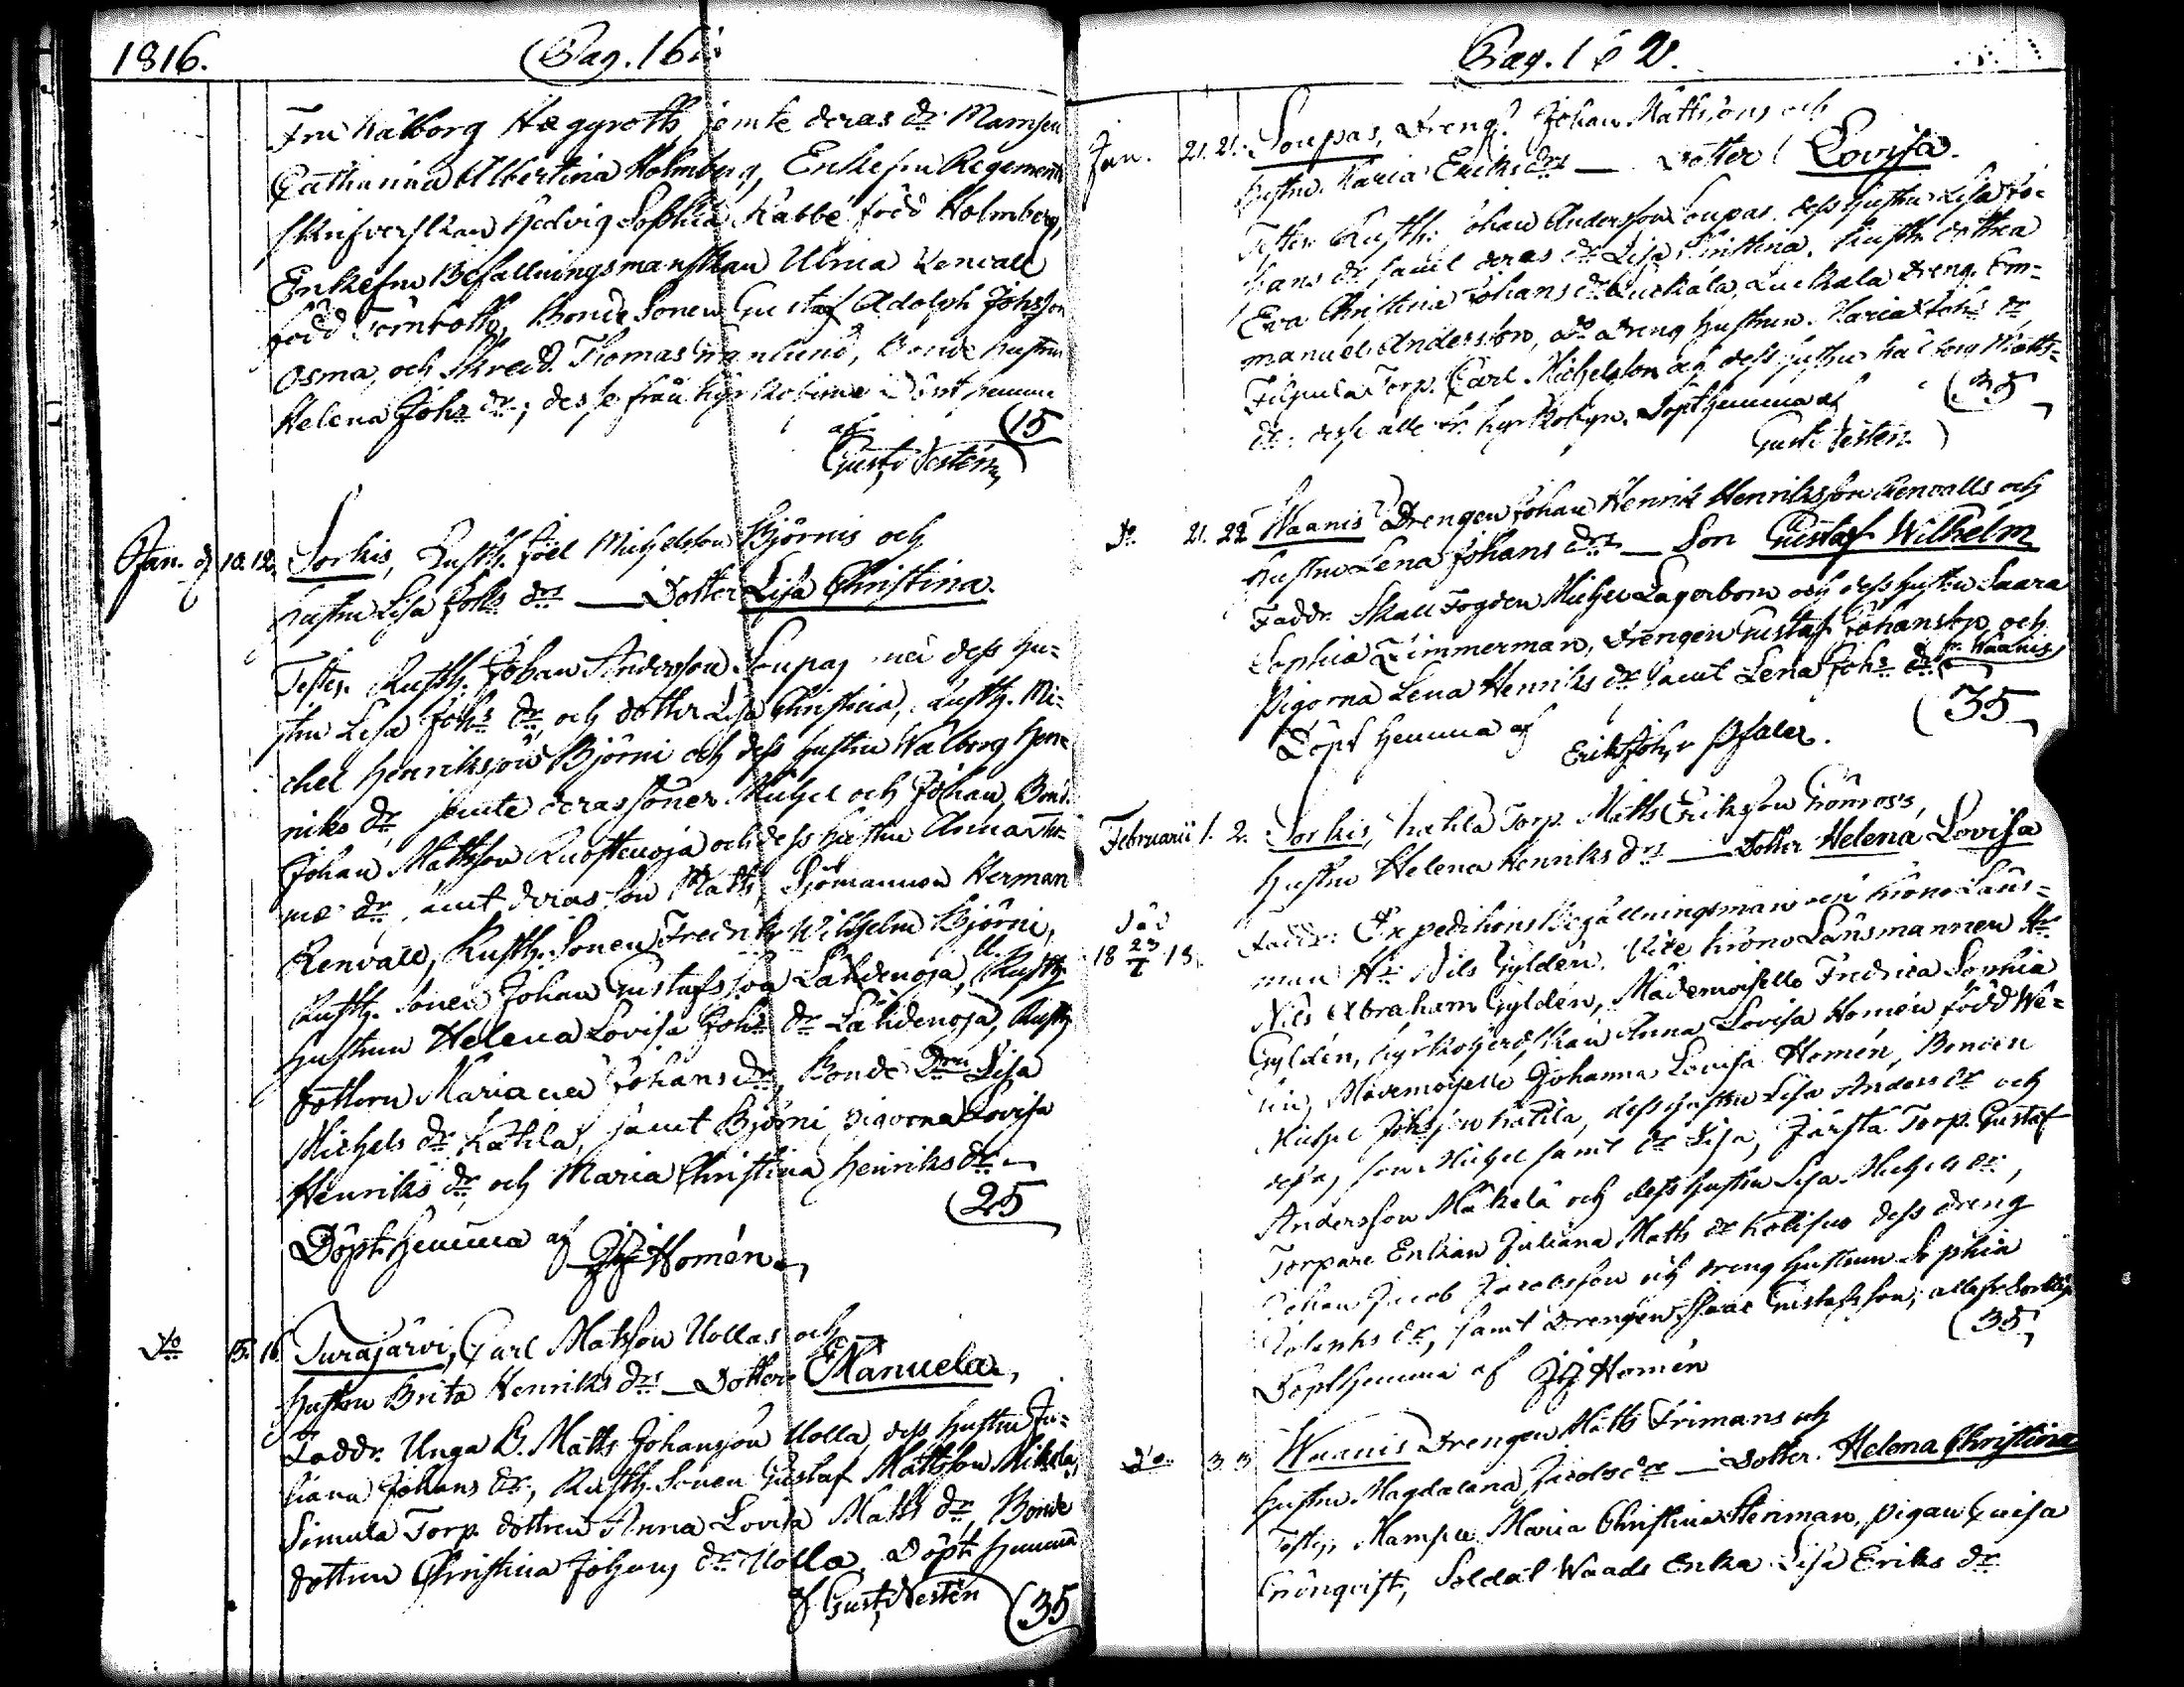 1816. Pag. 161.
Fru Walborg Hægyroth jemte deras dr Mamsell
Catharina Albertina Holmberg, Enkefru Regements
skrifverskan Hedvig Sophia Kabbe född Holmberg,
Enkefru Befallningsmanskan Ulrica Renvall
född Törnroth, Bonde Sonen Gustaf Adolph Johsson
Osma, och Skredd. Thomas Granlund, Bonde hustrun
Helena Johs dr; desse från Kyrkobyn Döpt hemma
af (15
Gust. Vesten
Jan. 10. 12. Sorkis, Rusth. Joel Michelsson Björnis och
hustru Lisa Johs drs — Dotter Lisa Christina.
Testes Rusth. Johan Andersson Soupas med dess hu=
stru Lisa Johs dr, och dotter Lisa Christina, Rusth. Mi=
chel Henriksson Björni och dess hustru Walborg Hen=
riks dr jemte deras söner Michel och Johan, Bond.
Johan Mattsson Ruostenoja och dess hustru Anna Tho=
mæ dr, samt deras son Matts, Sjömannen Herman
Renvall, Rusth. Sonen Fredrik Wilhelm Björni,
Rusth. Sonen Johan Gustafsson Lähdenoja, U. Rusth.
hustrun Helena Lovisa Johs dr Lähdenoja, Rusth.
dottern Maria Johans dr, Bonde Drn Lisa
Michels dr Kahila, samt Björni pigorna Lovisa
Henriks dr och Maria Christina Henriks dr
(25
Döpt hemma af JJ Homén
Do 15. 16. Turajärvi, Carl Matsson Uollas och
hustru Brita Henriks drs — Dotter Manuela,
Faddr. Unga B. Matts Johansson Uolla, dess hustru Ju=
liana Johans dr, Rusth. Sonen Gustaf Mattsson Mikola,
Simula Torp. dottren Anna Lovisa Matts dr, Bonde
dottren Christina Johans dr Uolla. Döpt hemma
af Gust. Vestén (35
Pag. 162.
Jan. 21. 21. Soupas, Dreng. Johan Mattsons och
hustru Maria Eriks drs — Dotter Lovisa.
Testes Rusth. Johan Andersson Soupas, dess hustru Lisa Jo=
hans dr samt deras dr Lisa Christina, Rusth. dottra
Eva Christina Johans dr Luckala, Luckala Dreng. Em=
manuel Andersson, do dreng hustrun Maria Johs dr
Filpula Torp. Carl Michelsson och dess hustru Walborg Matts=
dr, desse alle fr. Kyrkobyn. Döpt hemma af (35
Gust. Vestén
Do 21. 22 Waanis Drengen Johan Henrik Henriksson Renvalls och
hustru Lena Johans drs — Son Gustaf Wilhelm
Faddr. Skallfogden Michel Lagerbom och dess hustru Saara
Sophia Zimmerman, Drengen Gustaf Johansson och
pigorna Lena Henriks dr samt Lena Johs dr fr. Waanis
Döpt hemma af (35
Erik Joh. Pfaler.
Februarii 1. 2. Sorkis, Kahila Torp. Matts Eriksson Grönroos,
hustru Helena Henriks drs — Dotter Helena Lovisa
Död
18 23/7 18
Faddr: Expeditions Befallningsman och Krono Läns=
man Hr Nils Gyldén, Vice Krono Länsmannen Hr
Nils Abraham Gyldén, Mademoiselle Fredrica Sophia
Gyldén, Kyrkoherdskan Anna Lovisa Homén född We=
lin, Mademoiselle Johanna Lovisa Homén, Bonden
Michel Johsson Kahila, dess hustru Lisa Anders dr och
deras son Michel samt dr Lisa, Torp. Gustaf
Andersson Mäkelä och dess hustru Lisa Michels dr,
Torpare Enkan Juliana Matts dr dess dreng
Johan Jacob Jacobsson och dreng hustrun Sophia
dr, samt Drengen Isaac Gustafsson, alla fr. Sorkis
(35
Döpt hemma af JJ Homén
Do 3. 3. Waanis Drengen Matts Frimans och
hustru Magdalena Jacobs drs — Dotter. Helena Christina
Testes, Mamsell Maria Christina Heriman, pigan Lovisa
Grönqvist, Soldat Waads Enka Lisa Eriks dr